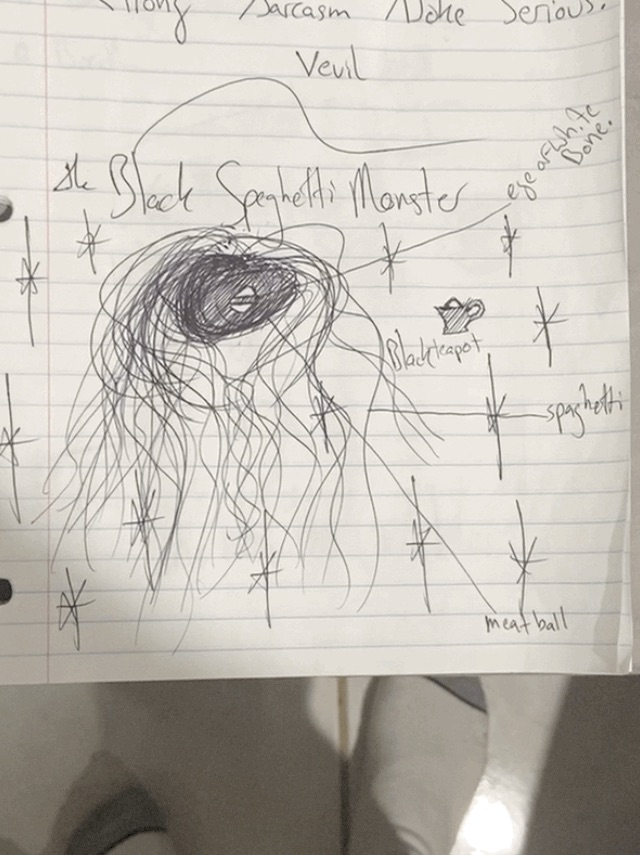 Sarcasm
Serious.
Vevil
the Black Spaghetti Monster
eye of white
Bone.
Black teapot
spaghetti
meatball